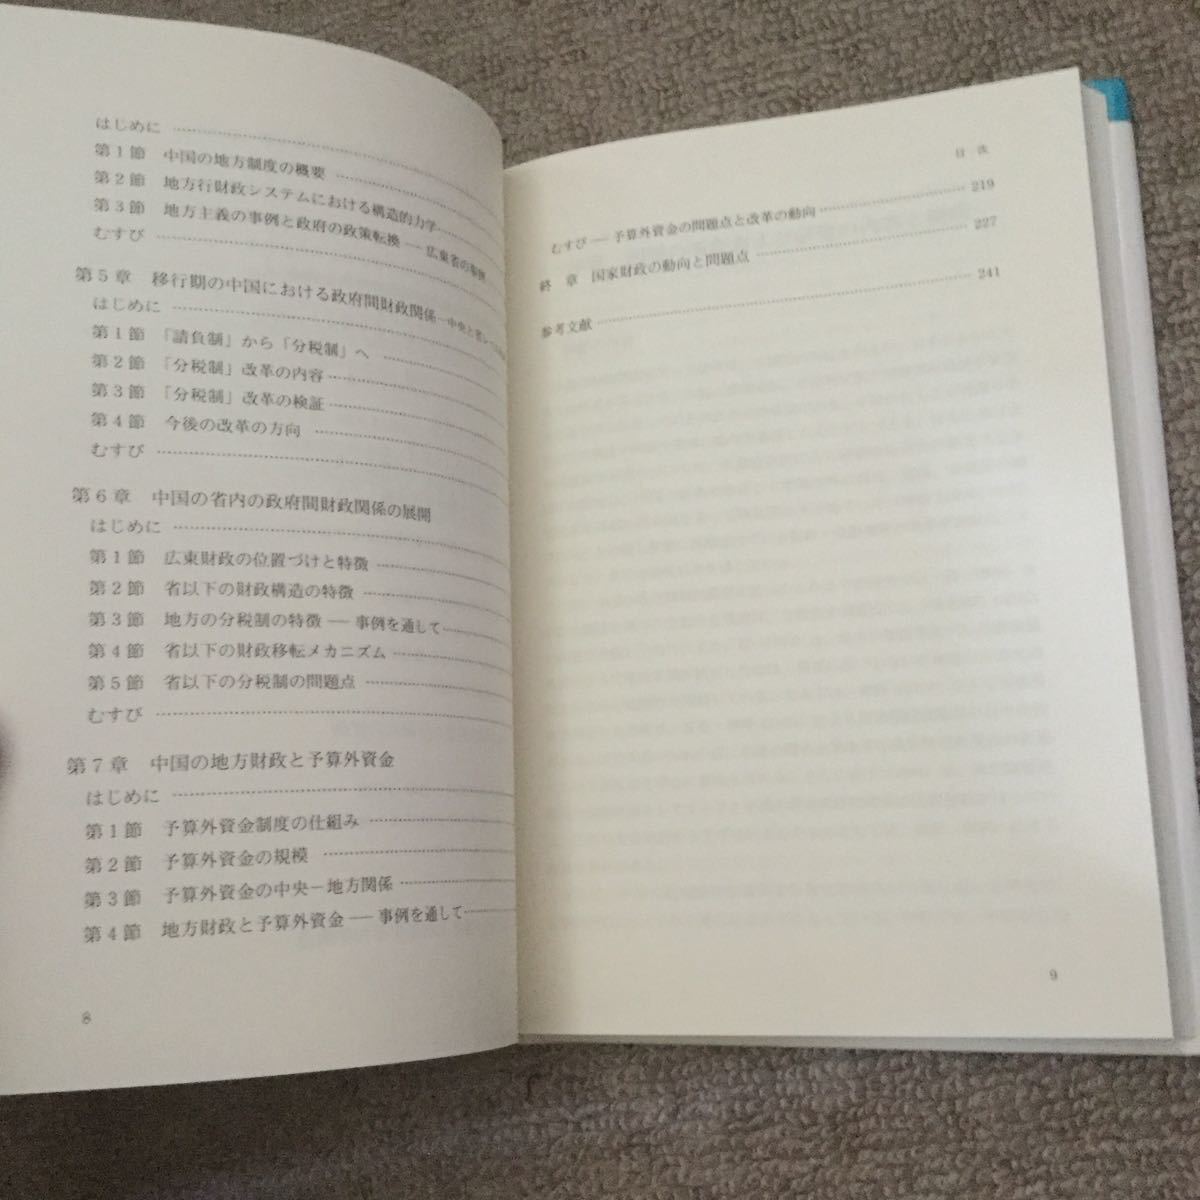 はじめに
第1節　中国の地方制度の概要
第2節　地方行財政システムにおける構造的力学
第3節　地方主義の事例と政府の政策転換 ── 広東省の事例
むすび
第5章　移行期の中国における政府間財政関係─中央と省
はじめに
第1節　「請負制」から「分税制」へ
第2節　「分税制」改革の内容
第3節　「分税制」改革の検証
第4節　今後の改革の方向
むすび
第6章　中国の省内の政府間財政関係の展開
はじめに
第1節　広東財政の位置づけと特徴
第2節　省以下の財政構造の特徴
第3節　地方の分税制の特徴 ── 事例を通して
第4節　省以下の財政移転メカニズム
第5節　省以下の分税制の問題点
むすび
第7章　中国の地方財政と予算外資金
はじめに
第1節　予算外資金制度の仕組み
第2節　予算外資金の規模
第3節　予算外資金の中央－地方関係
第4節　地方財政と予算外資金 ── 事例を通して
8
目　次
むすび ── 予算外資金の問題点と改革の動向 219
終　章　国家財政の動向と問題点 227
参考文献 241
9